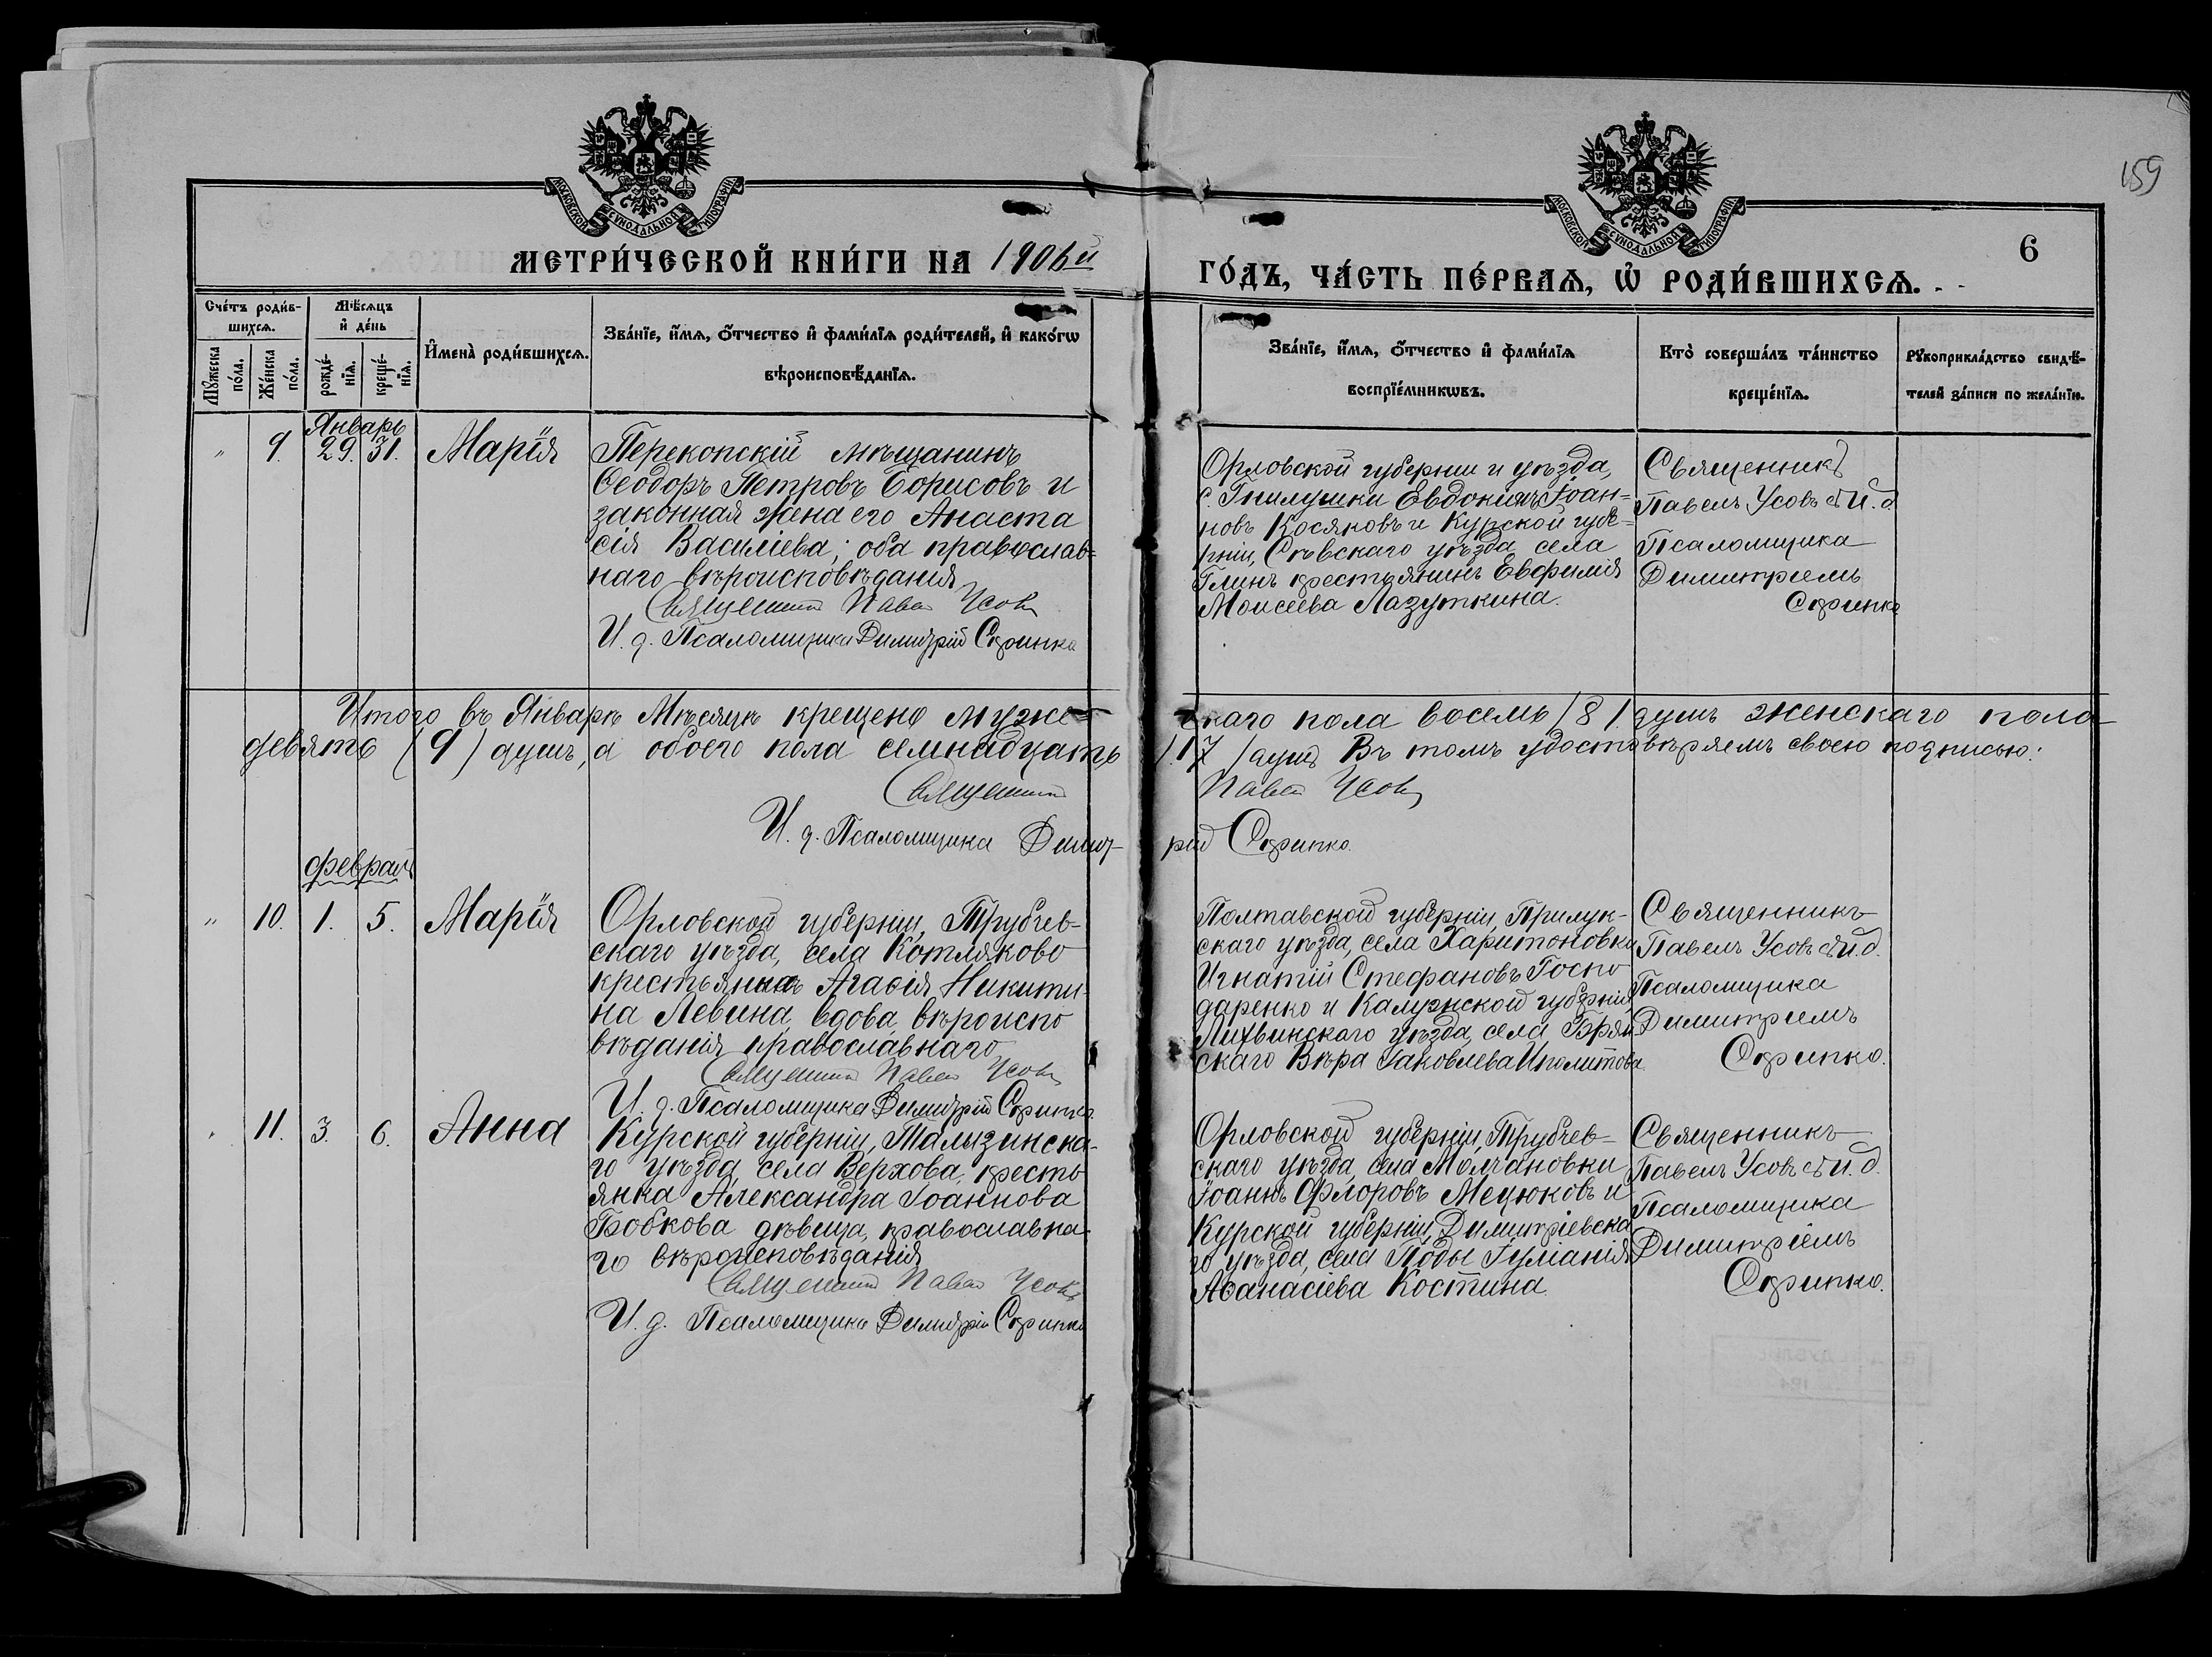 159
МОСКОВСКОЙ СѴНОДАЛЬНОЙ ТИПОГРАФІИ
МОСКОВСКОЙ СѴНОДАЛЬНОЙ ТИПОГРАФІИ
МЕТРИ́ЧЕСКОЙ КНИ́ГИ НА 1906й
ГО́ДЪ, ЧА́СТЬ ПЕ́РВАѦ, Ѡ҆ РОДИ́ВШИХСѦ.
6
Сче́тъ роди́в-
шихсѧ.
Мꙋ́жеска
по́ла.
Же́нска
по́ла.
Мѣ́сѧцъ
и҆ де́нь
рожде́-
нїѧ.
креще́-
нїѧ.
И҆мена̀ роди́вшихсѧ.
Зва́нїе, и҆́мѧ, ѻ҆́тчество и҆ фами́лїѧ роди́телей, и҆ како́гѡ
вѣроисповѣ́данїѧ.
Зва́нїе, и҆́мѧ, ѻ҆́тчество и҆ фами́лїѧ
воспрїе́мникѡвъ.
Кто̀ соверша́лъ та́инство
креще́нїѧ.
Рꙋкоприкла́дство свидѣ́-
телей за́писи по жела́нїю.
Январь
" 9. 29. 31. Марія
Перекопскій мѣщанинъ
Ѳеодоръ Петровъ Борисовъ и
законная жена его Анаста
сія Василіева; оба православ=
наго вѣроисповѣданія
Священник Павел Усов
И. д. Псаломщика Димитрій Скрипко
Орловской губерніи и уѣзда,
с. Гнилушки Евдокимъ Іоан=
новъ Косяковъ и Курской губе=
рніи, Сѣвскаго уѣзда села
Глинъ крестьянинъ Евфимія
Моисеева Лазуткина.
Священникъ
Павелъ Усовъ съ И. д.
Псаломщика
Димитріемъ
Скрипко
Итого въ Январѣ Мѣсяцѣ крещено муже=
скаго пола восемь (8) душъ женскаго пола
девять (9) душъ, а обоего пола семнадцать
(17) душъ Въ томъ удостовѣряемъ своею подписью:
Священник Павел Усов
И. д. Псаломщика Димит-
рій Скрипко.
февраль
" 10. 1. 5. Марія
Орловской губерніи, Трубчев-
скаго уѣзда, села Котляково
крестьянка Агаѳія Никити-
на Левина, вдова, вѣроиспо
вѣданія православнаго
Священник Павел Усов
И. д. Псаломщика Димитрій Скрипко.
Полтавской губерніи, Прилук-
скаго уѣзда, села Харитоновки
Игнатій Стефановъ Госпо
даренко и Калужской губерніи,
Лихвинскаго уѣзда, села Брян
скаго Вѣра Іаковлева Иполитова.
Священникъ
Павелъ Усовъ съ И. д.
Псаломщика
Димитріемъ
Скрипко.
" 11. 3. 6. Анна
Курской губерніи, Тализинска-
го уѣзда, села Верхова, кресть
янка Александра Іоаннова
Бобкова дѣвица, православна-
го вѣроисповѣданія
Священник Павел Усов
И. д. Псаломщика Димитрій Скрипко
Орловской губерніи, Трубчев-
скаго уѣзда, села Молчановки
Іоаннъ Флоровъ Мецюковъ и
Курской губерніи, Димитріевска
го уѣзда, села Поды Гуманія
Аѳанасіева Костина
Священникъ
Павелъ Усовъ съ И. д.
Псаломщика
Димитріемъ
Скрипко.